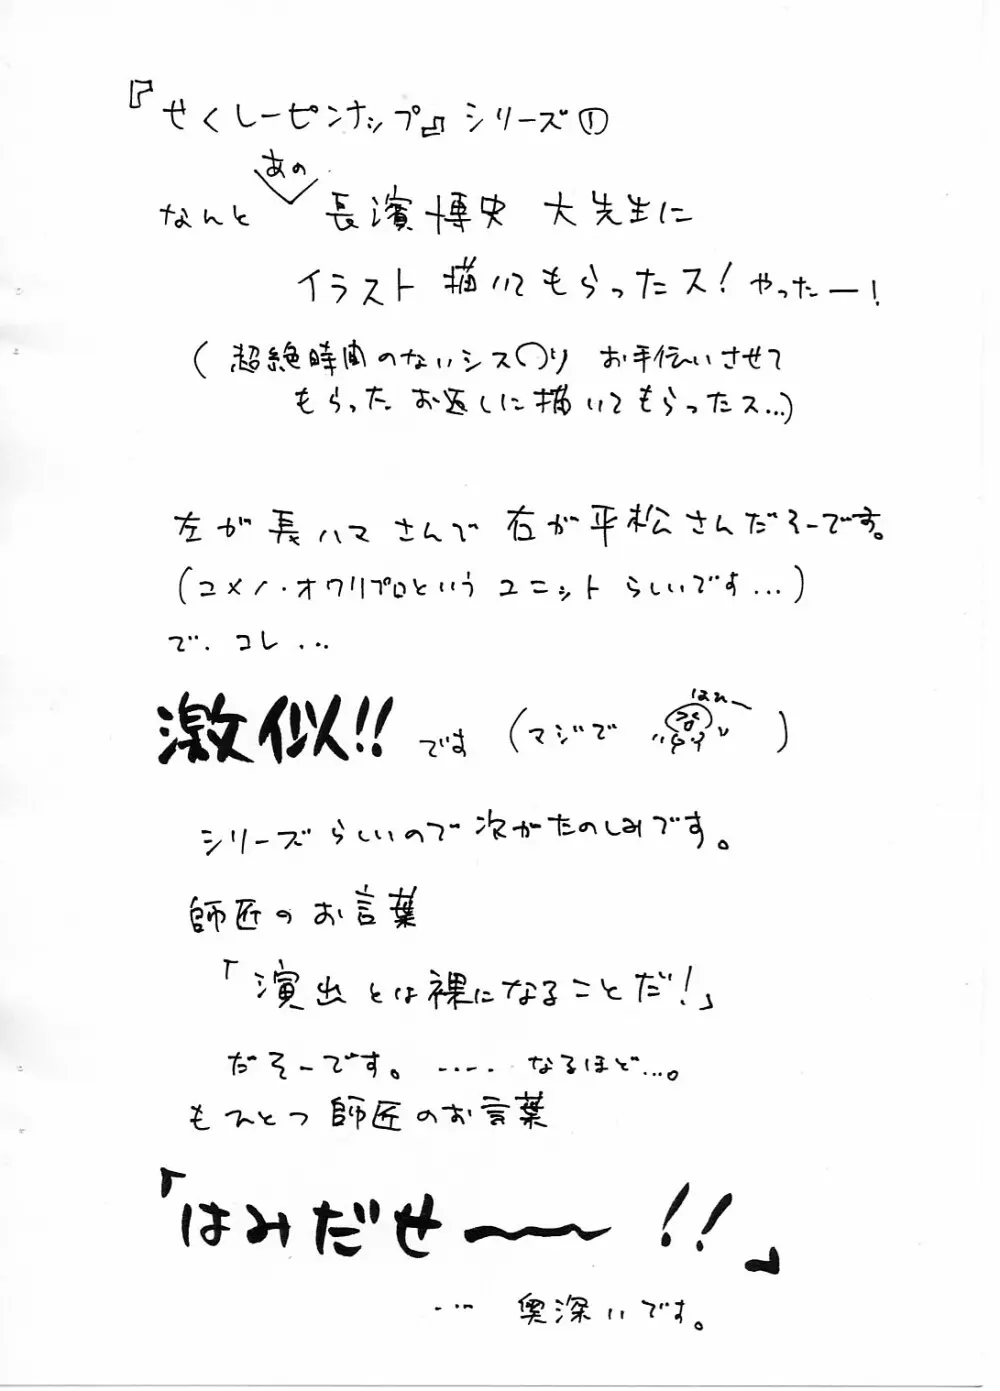 『せくしーピンナップ』シリーズ①
あの
なんと 長濱博史 大先生に
イラスト 描いてもらったス！やったー！
（超絶時間のないシス○り お手伝いさせて
もらった お返しに描いてもらったス…）
左が長ハマさんで 右が平松さんだそーです。
（ユメノ・オワリプロという ユニット らしいです…）
で、コレ…
激似!! です （マジで はれー ）
シリーズらしいので次がたのしみです。
師匠のお言葉
「演出とは裸になることだ！」
だそーです。…… なるほど…。
もひとつ師匠のお言葉
「はみだせ〜〜!!」
… 奥深いです。